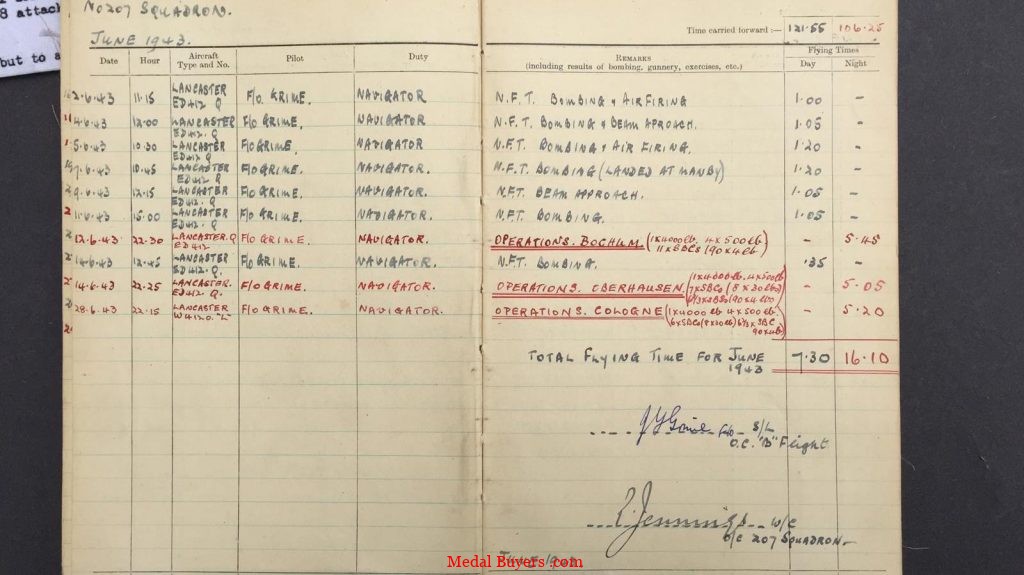 8 attack
but to a
No 207 SQUADRON.
JUNE 1943.
Time carried forward :— 121.55 106.25
Date Hour Aircraft Type and No. Pilot Duty REMARKS (including results of bombing, gunnery, exercises, etc.) Flying Times Day Night
2.6.43 11.15 LANCASTER ED412 Q F/O GRIME. NAVIGATOR N.F.T. BOMBING & AIR FIRING 1.00 -
4.6.43 12.00 LANCASTER ED412. Q F/O GRIME. NAVIGATOR N.F.T. BOMBING & BEAM APROACH. 1.05 -
5.6.43 10.30 LANCASTER ED412 Q F/O GRIME. NAVIGATOR N.F.T. BOMBING & AIR FIRING. 1.20 -
7.6.43 10.45 LANCASTER ED412. Q F/O GRIME. NAVIGATOR. N.F.T. BOMBING (LANDED AT MANBY) 1.20 -
9.6.43 12.15 LANCASTER ED412. Q F/O GRIME. NAVIGATOR. N.F.T. BEAM APPROACH. 1.05 -
11.6.43 15.00 LANCASTER ED412. Q F/O GRIME. NAVIGATOR. N.F.T. BOMBING. 1.05 -
12.6.43 22.30 LANCASTER. Q ED412 F/O GRIME. NAVIGATOR. OPERATIONS. BOCHUM (1x4000 lb. 4x500 lb. 11xSBCs (90x4 lb) - 5.45
14.6.43 12.45 LANCASTER ED412. Q F/O GRIME. NAVIGATOR. N.F.T. BOMBING. .35 -
14.6.43 22.25 LANCASTER. ED412. Q. F/O GRIME. NAVIGATOR. OPERATIONS. OBERHAUSEN (1x4000 lb. 4x500 lb - 5.05
28.6.43 22.15 LANCASTER W4120. "L" F/O GRIME. NAVIGATOR. OPERATIONS. COLOGNE (1x4000 lb 4x500 lb. - 5.20
TOTAL FLYING TIME FOR JUNE 1943 7.30 16.10
F/O S/L
O.C. "B" Flight
Jennings W/C
O/C 207 SQUADRON
JUNE 1943
Medal Buyers .com